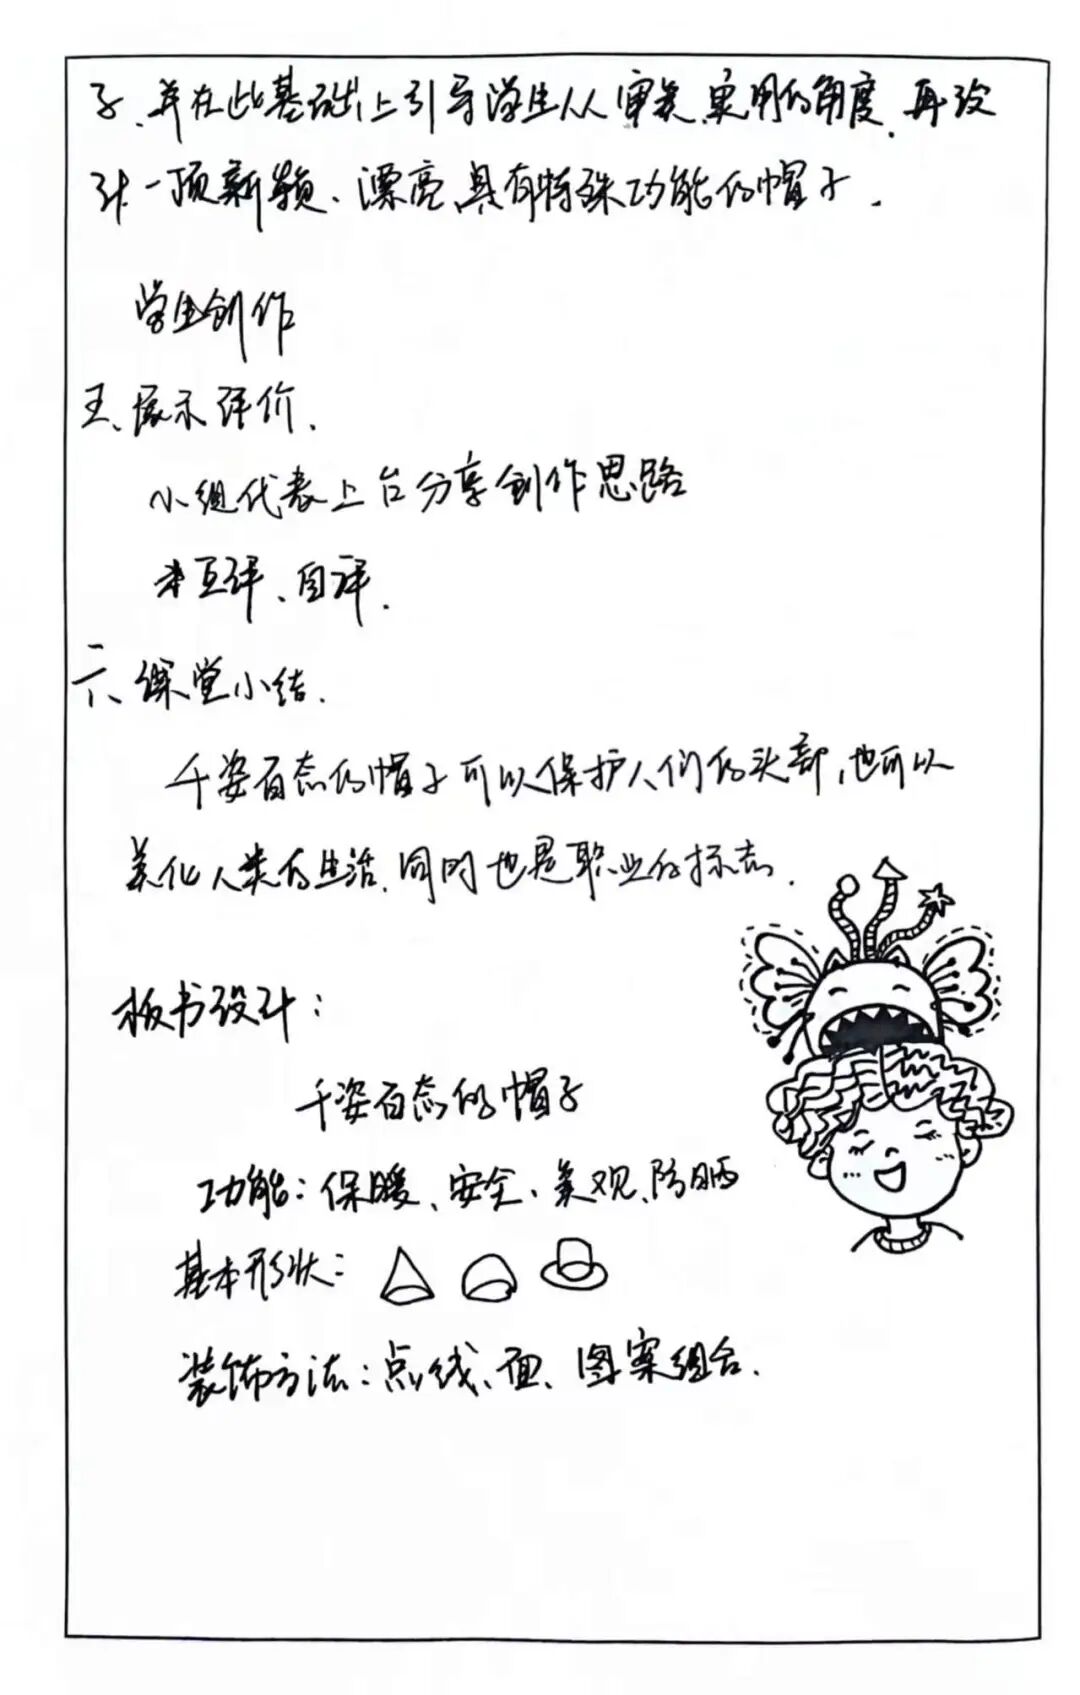 子,并在此基础上引导学生从审美、实用的角度,再设
计一顶新颖、漂亮、具有特殊功能的帽子.
学生创作
五、展示评价.
小组代表上台分享创作思路
互评、自评.
六、课堂小结.
千姿百态的帽子可以保护人们的头部,也可以
美化人类的生活,同时也是职业的标志.
板书设计:
千姿百态的帽子
功能:保暖、安全、美观、防晒
基本形状:
装饰方法:点、线、面、图案组合.